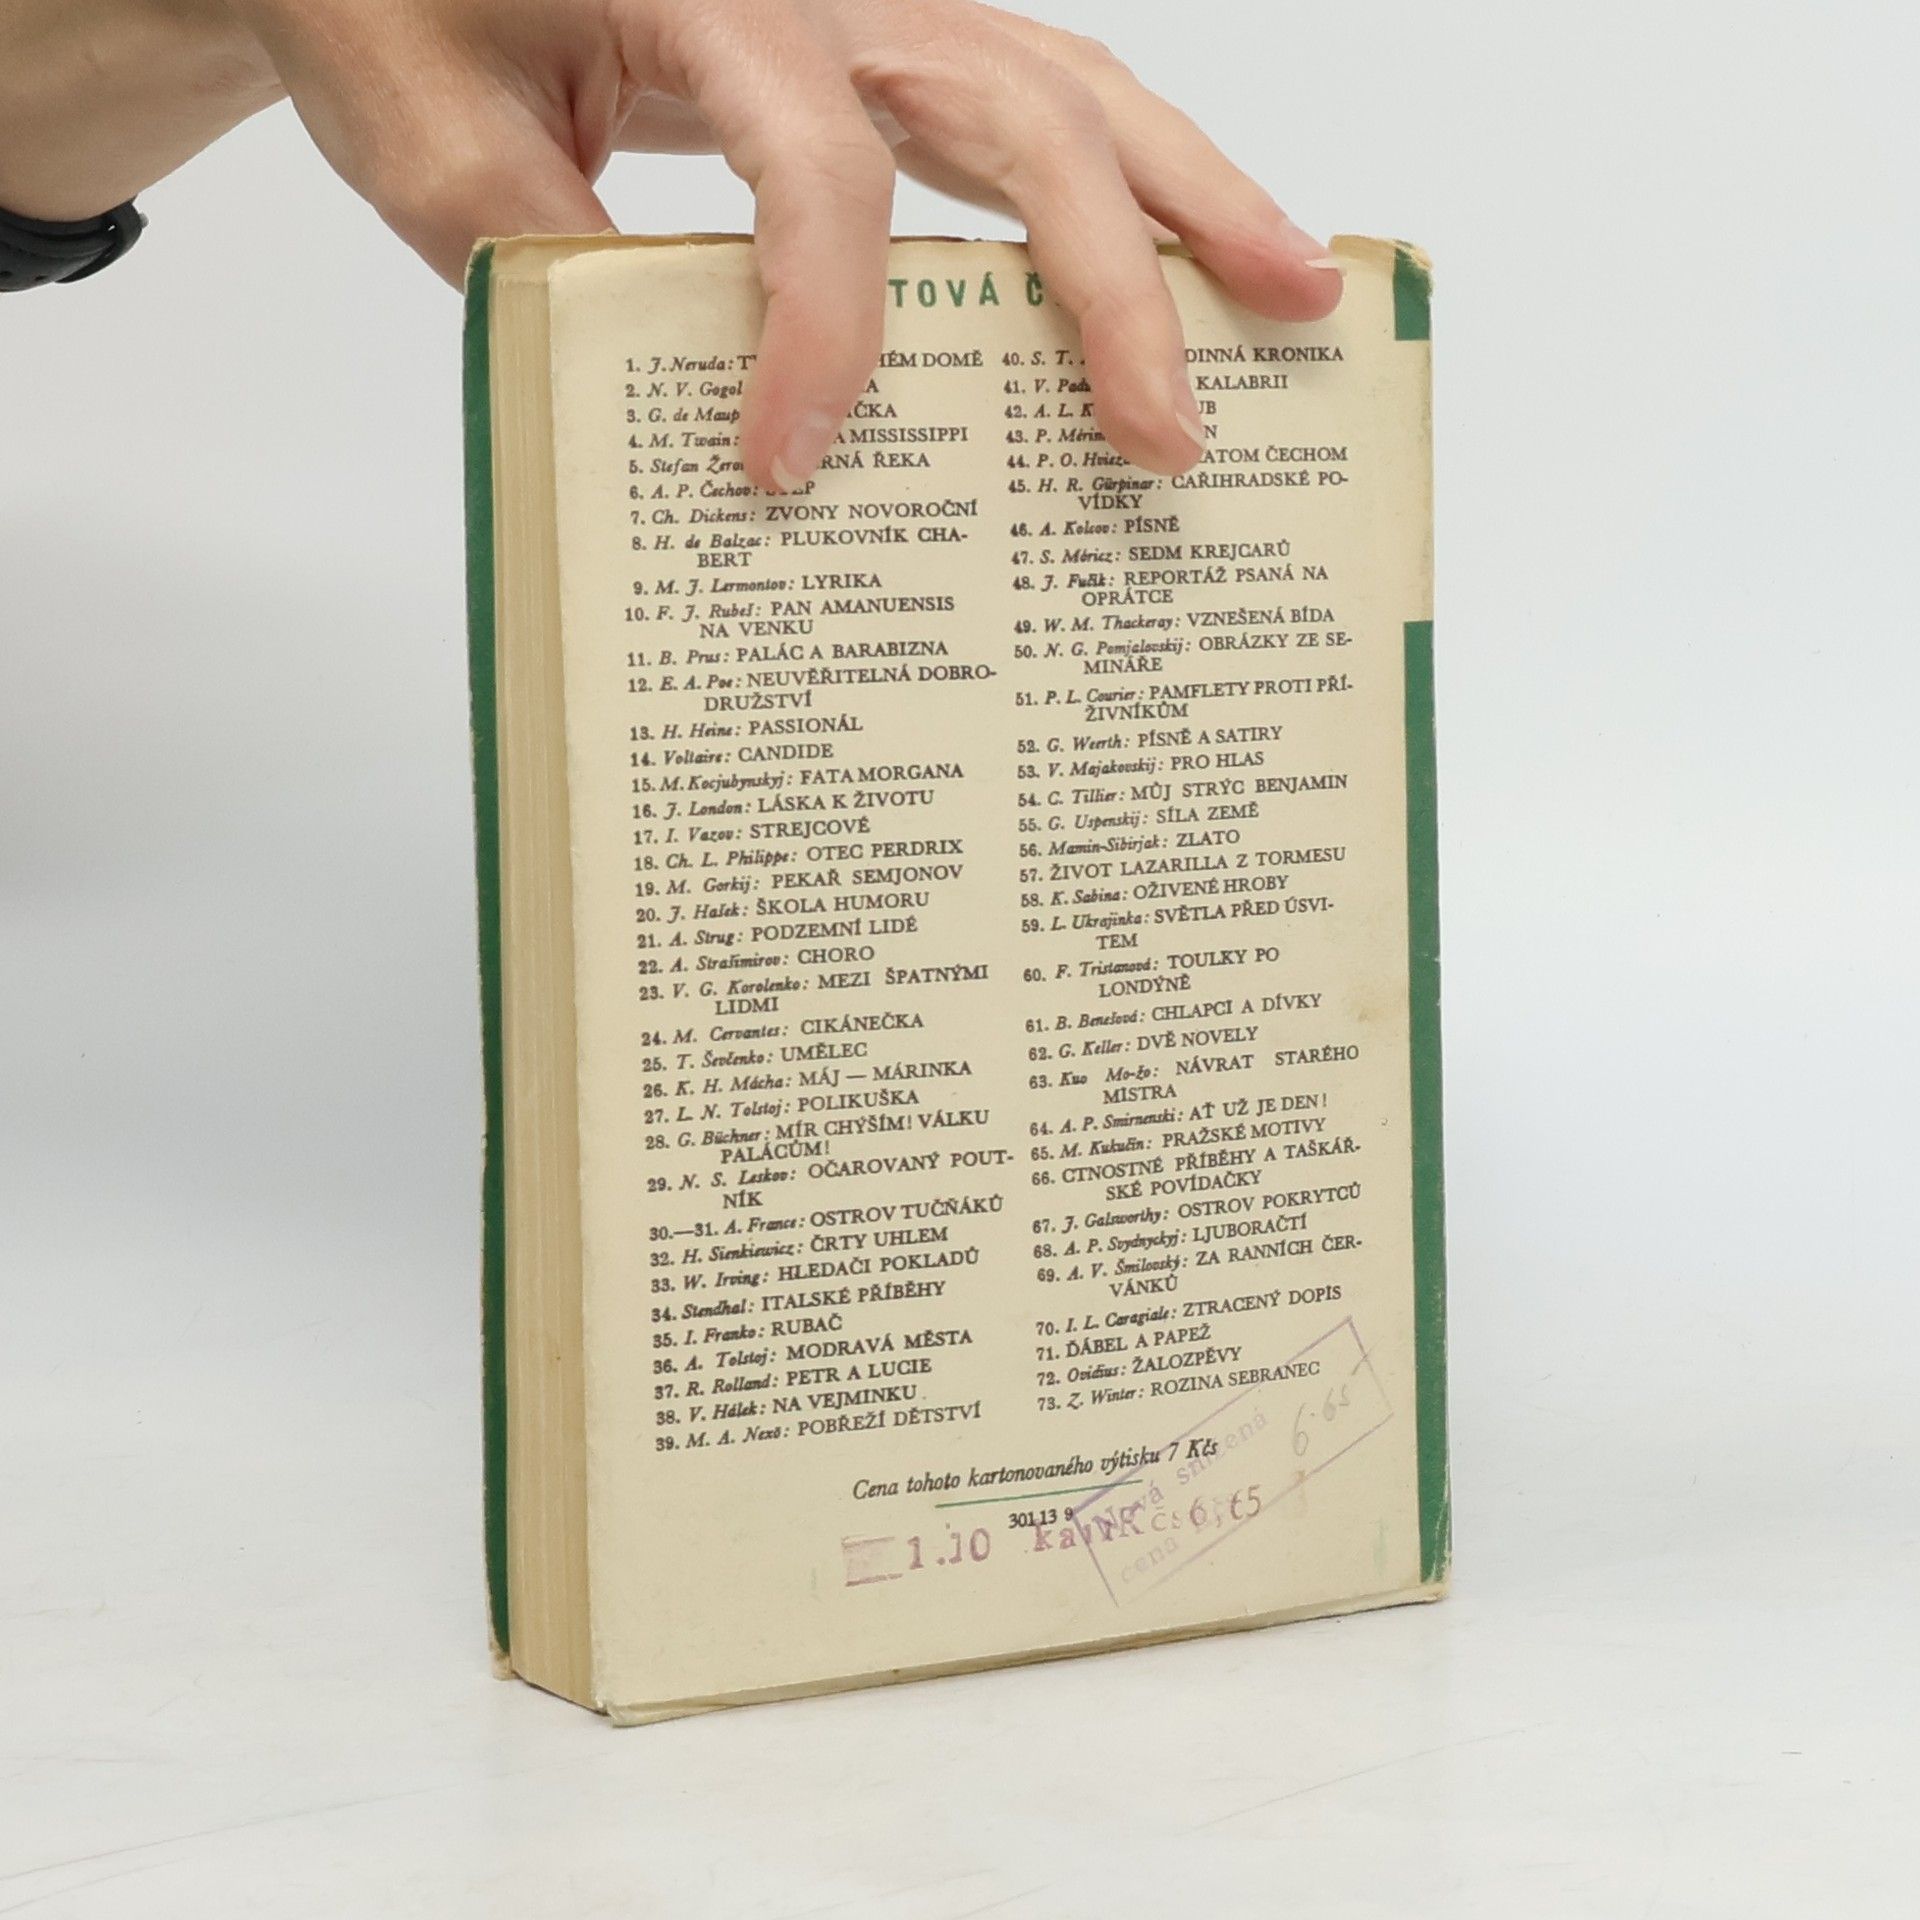 TOVÁ Č
1. J. Neruda: T HÉM DOMĚ
2. N. V. Gogol A
3. G. de Maup AČKA
4. M. Twain: A MISSISSIPPI
5. Stefan Žero RNÁ ŘEKA
6. A. P. Čechov: P
7. Ch. Dickens: ZVONY NOVOROČNÍ
8. H. de Balzac: PLUKOVNÍK CHA-
BERT
9. M. J. Lermontov: LYRIKA
10. F. J. Rubeš: PAN AMANUENSIS
NA VENKU
11. B. Prus: PALÁC A BARABIZNA
12. E. A. Poe: NEUVĚŘITELNÁ DOBRO-
DRUŽSTVÍ
13. H. Heine: PASSIONÁL
14. Voltaire: CANDIDE
15. M. Kocjubynskyj: FATA MORGANA
16. J. London: LÁSKA K ŽIVOTU
17. I. Vazov: STREJCOVÉ
18. Ch. L. Philippe: OTEC PERDRIX
19. M. Gorkij: PEKAŘ SEMJONOV
20. J. Hašek: ŠKOLA HUMORU
21. A. Strug: PODZEMNÍ LIDÉ
22. A. Strašimirov: CHORO
23. V. G. Korolenko: MEZI ŠPATNÝMI
LIDMI
24. M. Cervantes: CIKÁNEČKA
25. T. Ševčenko: UMĚLEC
26. K. H. Mácha: MÁJ — MÁRINKA
27. L. N. Tolstoj: POLIKUŠKA
28. G. Büchner: MÍR CHÝŠÍM! VÁLKU
PALÁCŮM!
29. N. S. Leskov: OČAROVANÝ POUT-
NÍK
30.—31. A. France: OSTROV TUČŇÁKŮ
32. H. Sienkiewicz: ČRTY UHLEM
33. W. Irving: HLEDAČI POKLADŮ
34. Stendhal: ITALSKÉ PŘÍBĚHY
35. I. Franko: RUBAČ
36. A. Tolstoj: MODRAVÁ MĚSTA
37. R. Rolland: PETR A LUCIE
38. V. Hálek: NA VEJMINKU
39. M. A. Nexö: POBŘEŽÍ DĚTSTVÍ
40. S. T. DINNÁ KRONIKA
41. V. Pads KALABRII
42. A. L. K UB
43. P. Mérim N
44. P. O. Hviezd ATOM ČECHOM
45. H. R. Gürpinar: CAŘIHRADSKÉ PO-
VÍDKY
46. A. Kolcov: PÍSNĚ
47. S. Móricz: SEDM KREJCARŮ
48. J. Fučík: REPORTÁŽ PSANÁ NA
OPRÁTCE
49. W. M. Thackeray: VZNEŠENÁ BÍDA
50. N. G. Pomjalovskij: OBRÁZKY ZE SE-
MINÁŘE
51. P. L. Courier: PAMFLETY PROTI PŘÍ-
ŽIVNÍKŮM
52. G. Weerth: PÍSNĚ A SATIRY
53. V. Majakovskij: PRO HLAS
54. C. Tillier: MŮJ STRÝC BENJAMIN
55. G. Uspenskij: SÍLA ZEMĚ
56. Mamin-Sibirjak: ZLATO
57. ŽIVOT LAZARILLA Z TORMESU
58. K. Sabina: OŽIVENÉ HROBY
59. L. Ukrajinka: SVĚTLA PŘED ÚSVI-
TEM
60. F. Tristanová: TOULKY PO
LONDÝNĚ
61. B. Benešová: CHLAPCI A DÍVKY
62. G. Keller: DVĚ NOVELY
63. Kuo Mo-žo: NÁVRAT STARÉHO
MISTRA
64. A. P. Smirnenski: AŤ UŽ JE DEN!
65. M. Kukučín: PRAŽSKÉ MOTIVY
66. CTNOSTNÉ PŘÍBĚHY A TAŠKÁŘ-
SKÉ POVÍDAČKY
67. J. Galsworthy: OSTROV POKRYTCŮ
68. A. P. Svydnyckyj: LJUBORAČTÍ
69. A. V. Šmilovský: ZA RANNÍCH ČER-
VÁNKŮ
70. I. L. Caragiale: ZTRACENÝ DOPIS
71. ĎÁBEL A PAPEŽ
72. Ovidius: ŽALOZPĚVY
73. Z. Winter: ROZINA SEBRANEC
Cena tohoto kartonovaného výtisku 7 Kčs
301 13 9
Nová snížená
cena
6.65
1.10 Kčs 6,65